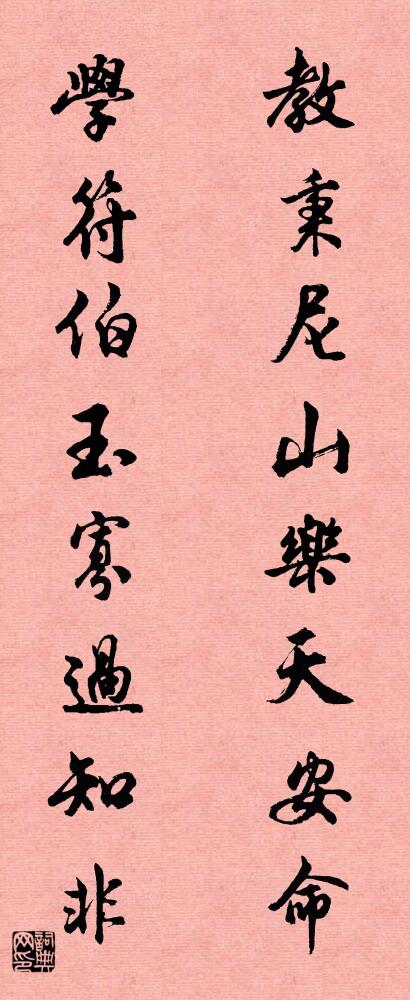 教秉尼山樂天安命
學符伯玉寡過知非
詞典網印